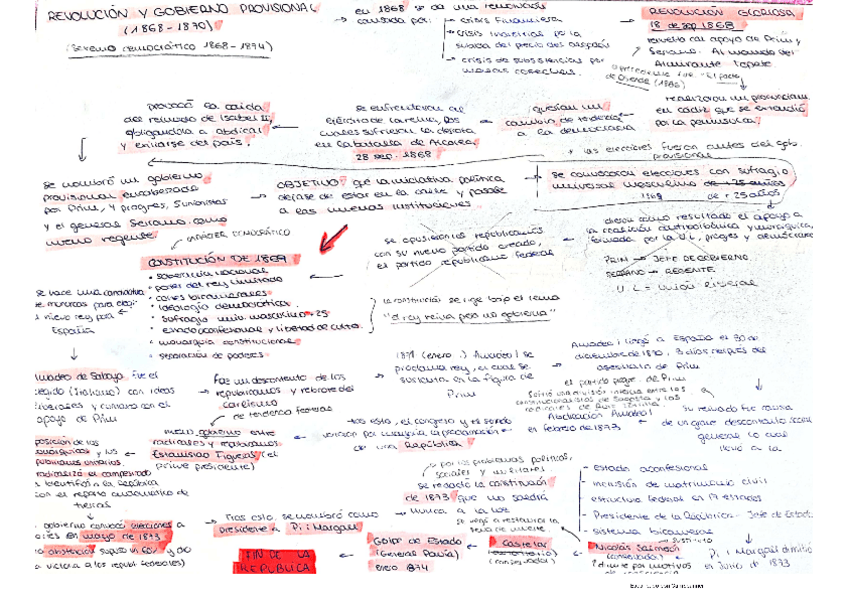 REVOLUCIÓN Y GOBIERNO PROVISIONAL
(1868-1870)
(Sexenio democrático 1868-1874)
en 1868
causada por:
crisis financiera
crisis
subida del precio del
crisis de subsistencias por
malas cosechas.
REVOLUCIÓN GLORIOSA
18 de sep 1868
apoyo de Prim y
Serrano. Al mando del
Almirante Topete
de Ostende (1866)
realizaron un
en Cádiz que se extendió
por la península.
querían un
cambio de tendencia
a la democracia
se enfrentaron al
ejército
cuales sufrieron la derrota
en la batalla de Alcolea,
28 sep. 1868
provocó la caída
del reinado de Isabel II,
obligándola a abdicar
y exiliarse del país.
las elecciones fueron antes del gob.
provisional
se nombró un gobierno
provisional encabezado
por Prim, y progres, Unionistas
y el general Serrano como
nuevo regente.
OBJETIVO: que la iniciativa política
dejase de estar en la calle y pasase
a las nuevas instituciones.
se convocaron elecciones con sufragio
universal masculino de + 25 años
1968
de + 25 años
dieron como resultado el apoyo a
la coalición
formada por la U.L, progres y demócratas
PRIM → JEFE DE GOBIERNO.
SERRANO → REGENTE.
U. L = Unión liberal
se oponían republicanos
con su nuevo partido creado,
el partido republicano federal
CARÁCTER DEMOCRÁTICO
CONSTITUCIÓN DE 1869
soberanía nacional
poder del rey limitado
cortes bicamerales
ideología democrática
sufragio univ. masculino + 25
estado aconfesional y libertad de culto.
monarquía constitucional
separación de poderes
la constitución se rige bajo el lema
"el rey reina pero no gobierna"
se hace una
nuevo rey para
España
Amadeo de Saboya, fue el
elegido (italiano) con ideas
liberales y contaba con el
apoyo de Prim
fue un descontento de los
republicanos y rebrote del
carlismo
de tendencia federal
1871 (enero) Amadeo I se
proclama rey, el cual se
sustenta en la figura de
Prim
Amadeo I llegó a España el 30 de
diciembre de 1870, 3 días después del
asesinato de
Prim
el partido progre. de Prim
sufrió una división interna entre los
constitucionalistas de Sagasta y los
radicales de Ruiz Zorrilla.
Su reinado fue causa
de un grave descontento
general lo cual
llevó a la
Abdicación Amadeo I
en febrero de 1873
tras esto, el congreso y el senado
la proclamación
de una República
nuevo gobierno entre
radicales y republicanos
Estanislao Figueras (el
primer presidente)
oposición de los
monárquicos y los
republicanos unitarios.
radicalizó el campesinado
identificó la República
con el reparto automático de
tierras
gobierno convocó elecciones a
cortes en mayo de 1873
la abstención supuso un 60%
la victoria a los republ. federales)
Tras esto, se nombró como
presidente a Pi i Margall
por los problemas políticos,
sociales y militares.
se redactó la constitución
de 1873 que no saldría
nunca a la luz
estado aconfesional
inclusión de matrimonio civil
estructura federal en 17 estados
Presidente de la República - Jefe de Estado
sistema bicameral
Pi i Margall dimitió
en julio de 1873
Nicolás Salmerón
(conservador)
dimite por motivos
se negó a restaurar la
pena de muerte.
Castelar
(conservador)
Golpe de Estado
(General Pavía)
enero 1874
FIN DE LA
REPÚBLICA